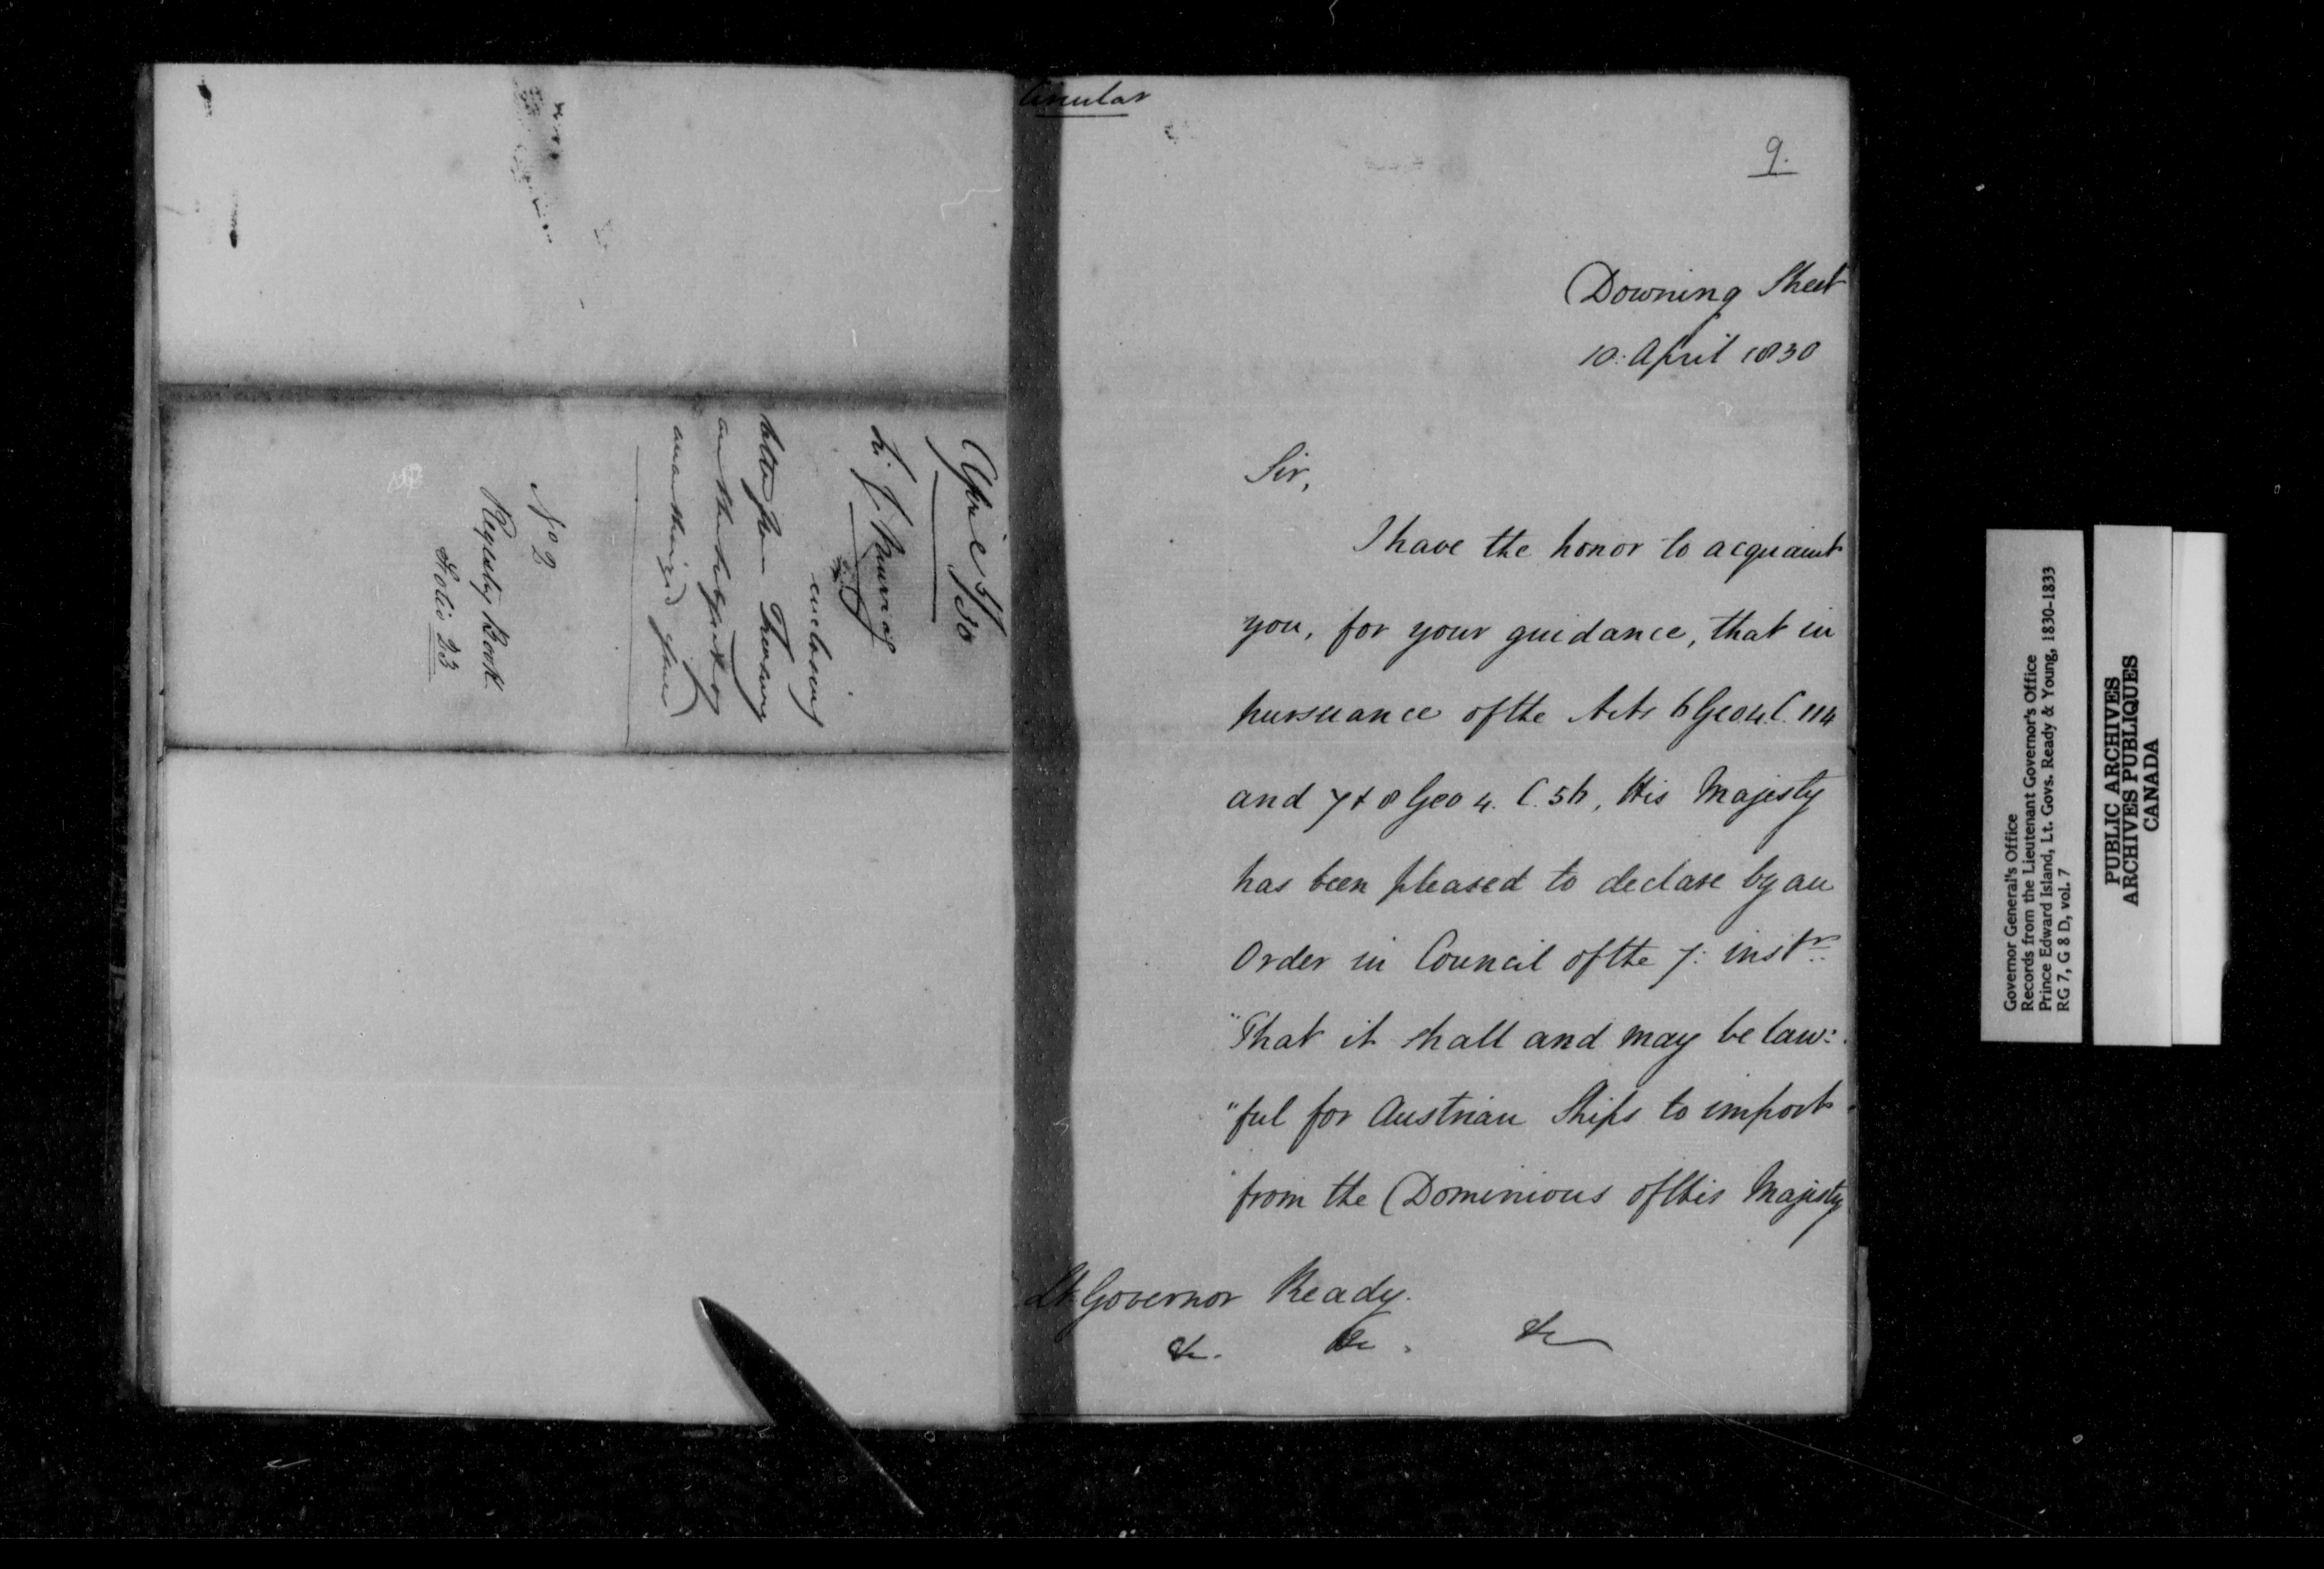 April 5/30
Sir G. Murray
enclosing
letter from Treasury
on the subject of
N° 2
Register Book
Folio 23
Circular
9.
Downing Street
10: April 1830
Sir,
I have the honor to acquaint
you, for your guidance, that in
pursuance of the Acts 6 Geo 4. C. 114
and 7 & 8 Geo 4. C. 56, His Majesty
has been pleased to declare by an
Order in Council of the 7: inst
"That it shall and may be law:
"ful for Austrian Ships to import
"from the Dominions of His Majesty
Lt. Governor Ready.
&c. &c. &c
Governor General's Office
Records from the Lieutenant Governor's Office
Prince Edward Island, Lt. Govs. Ready & Young, 1830-1833
RG 7, G 8 D, vol. 7
PUBLIC ARCHIVES
ARCHIVES PUBLIQUES
CANADA